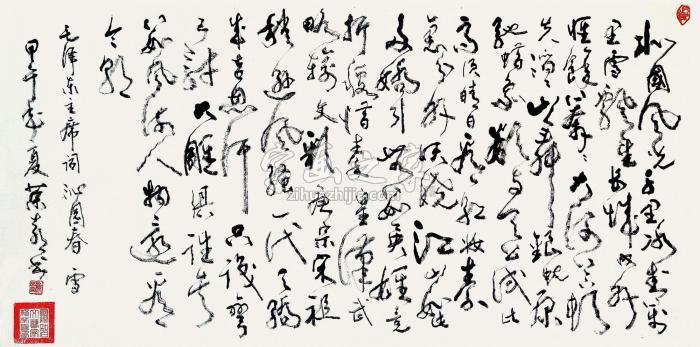 北國风光千里冰封万
里雪飘望长城内外
惟馀莽莽大河上下顿
失滔滔山舞银蛇原
驰蜡象欲与天公试比
高须晴日看红妆素
裹分外妖娆江山如此
多娇引无数英雄竞
折腰惜秦皇汉武
略输文彩唐宗宋祖
稍逊风骚一代天骄
成吉思汗只识弯
弓射大雕俱往矣
数风流人物还看
今朝
毛泽东主席词 沁园春 雪
甲午年夏
字画之家
zihuazhijia.com